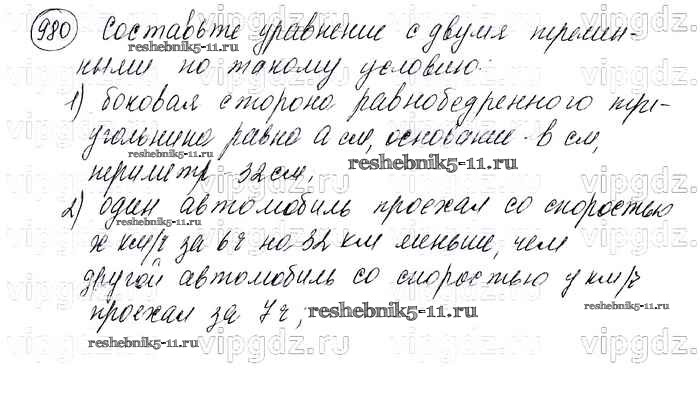 980 Составьте уравнение с двумя перемен-
ными по такому условию:
1) боковая сторона равнобедренного тре-
угольника равна a см, основание - b см,
периметр - 32 см;
2) один автомобиль проехал со скоростью
x км/ч за 6ч на 32 км меньше, чем
другой автомобиль со скоростью y км/ч
проехал за 7ч;
reshebnik5-11.ru
reshebnik5-11.ru
reshebnik5-11.ru
reshebnik5-11.ru
reshebnik5-11.ru
reshebnik5-11.ru
reshebnik5-11.ru
vipgdz.ru